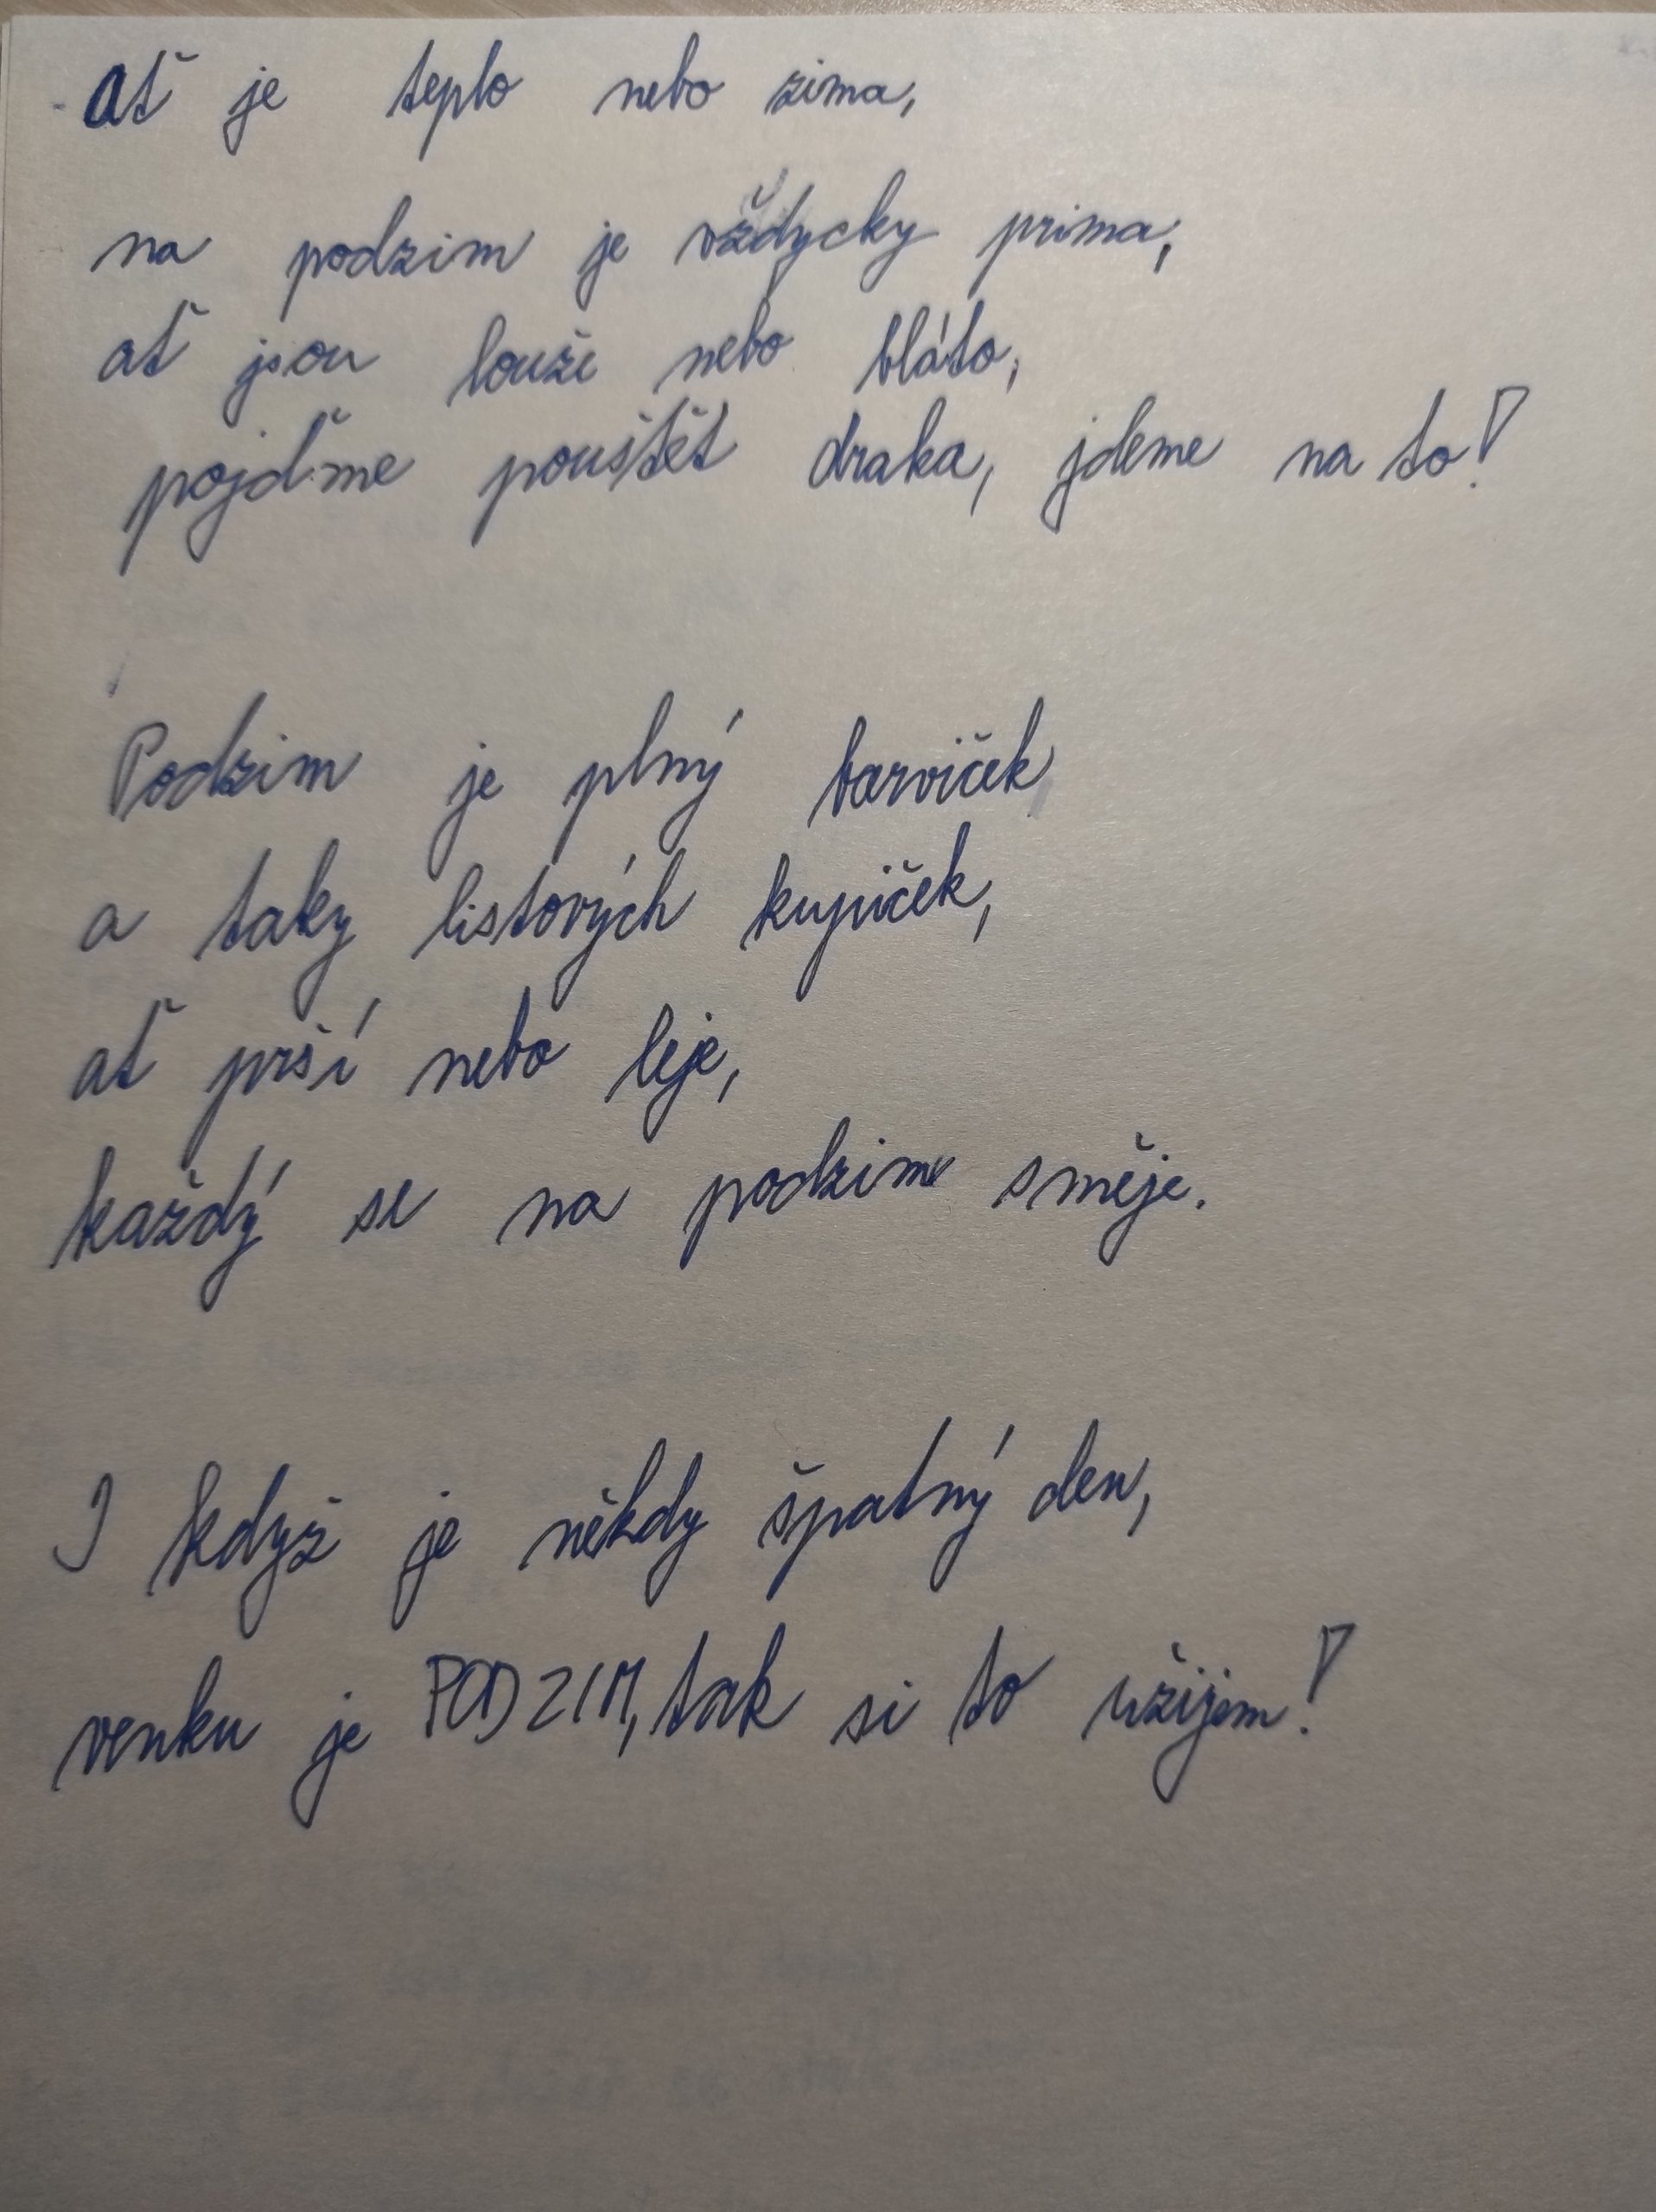 ať je teplo nebo zima,
na podzim je vždycky prima,
ať jsou louže nebo bláto,
pojďme pouštět draka, jdeme na to!
Podzim je plný barviček
a taky listových kupiček,
ať prší nebo leje,
každý se na podzim směje.
I když je někdy špatný den,
venku je PODZIM, tak si to užijem!